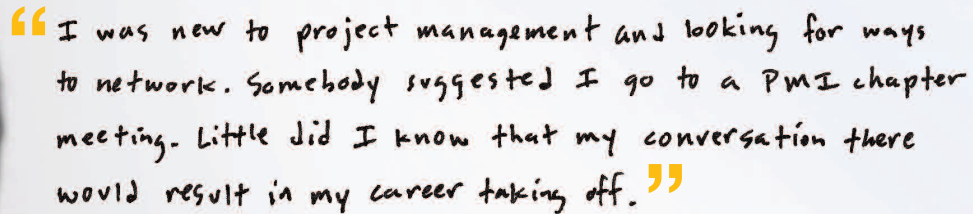 “I was new to project management and looking for ways
to network. Somebody suggested I go to a PMI chapter
meeting. Little did I know that my conversation there
would result in my career taking off.”